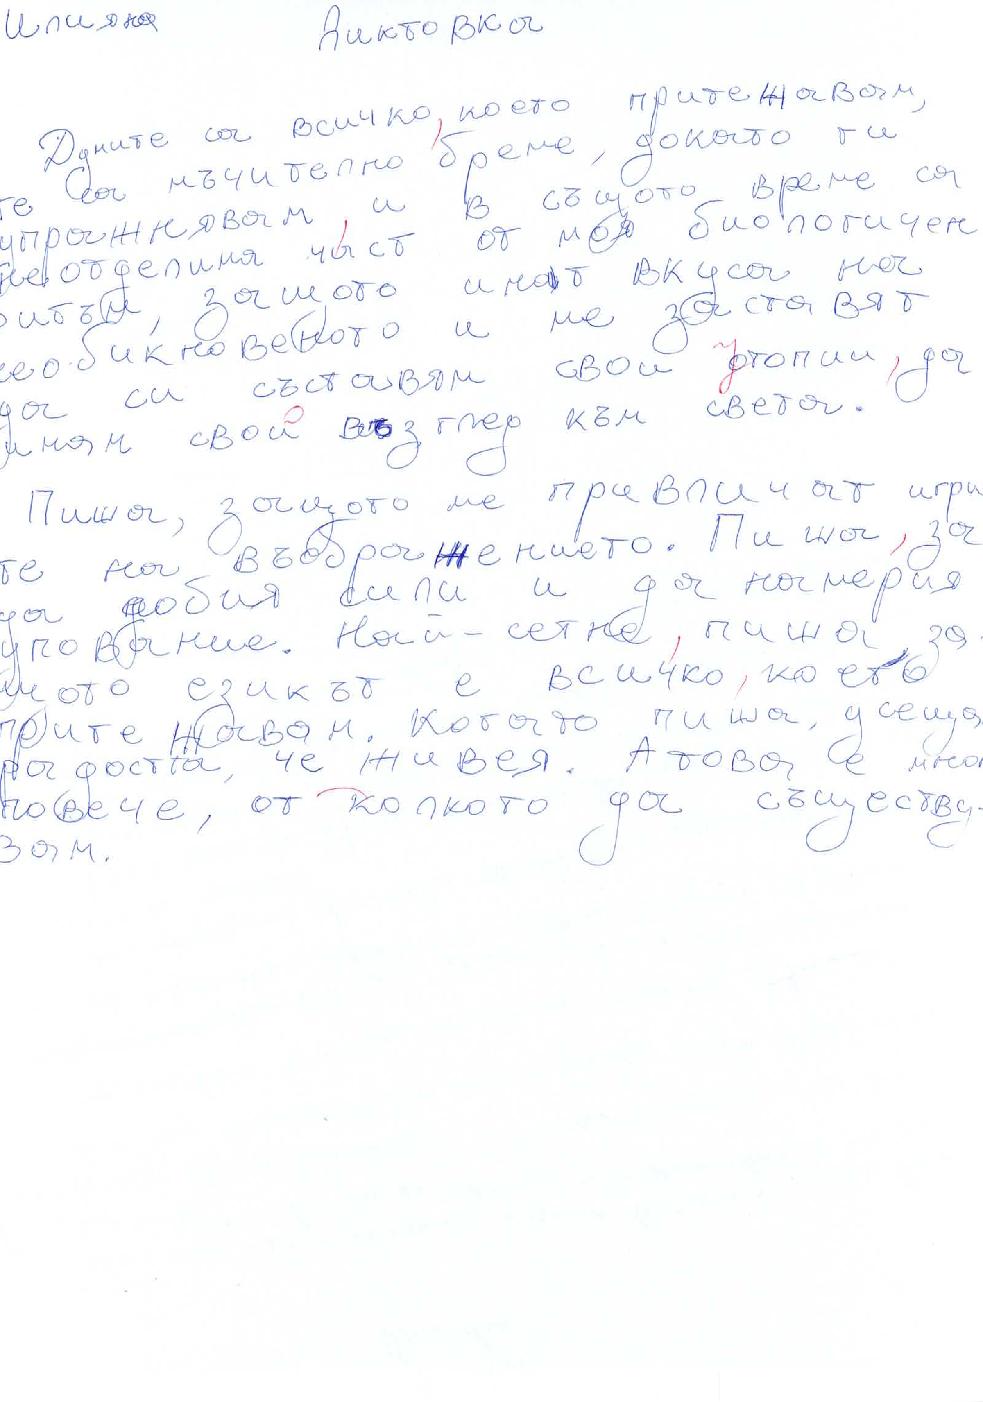 Илияна Диктовка
Думите са всичко, което притежавам,
те са мъчително бреме, докато ги
упражнявам, и в същото време са
неотделима част от моя биологичен
ритъм, защото имат вкуса на
необикновеното и ме заставят
да си съставям свои утопии, да
имам свой възглед към света.
Пиша, защото ме привличат игри-
те на въображението. Пиша, за
да добия сили и да намеря
упование. Най-сетне, пиша, за-
щото езикът е всичко, което
притежавам. Когато пиша, усеща
радостта, че живея. А това е мног
повече, от колкото да съществу-
вам.